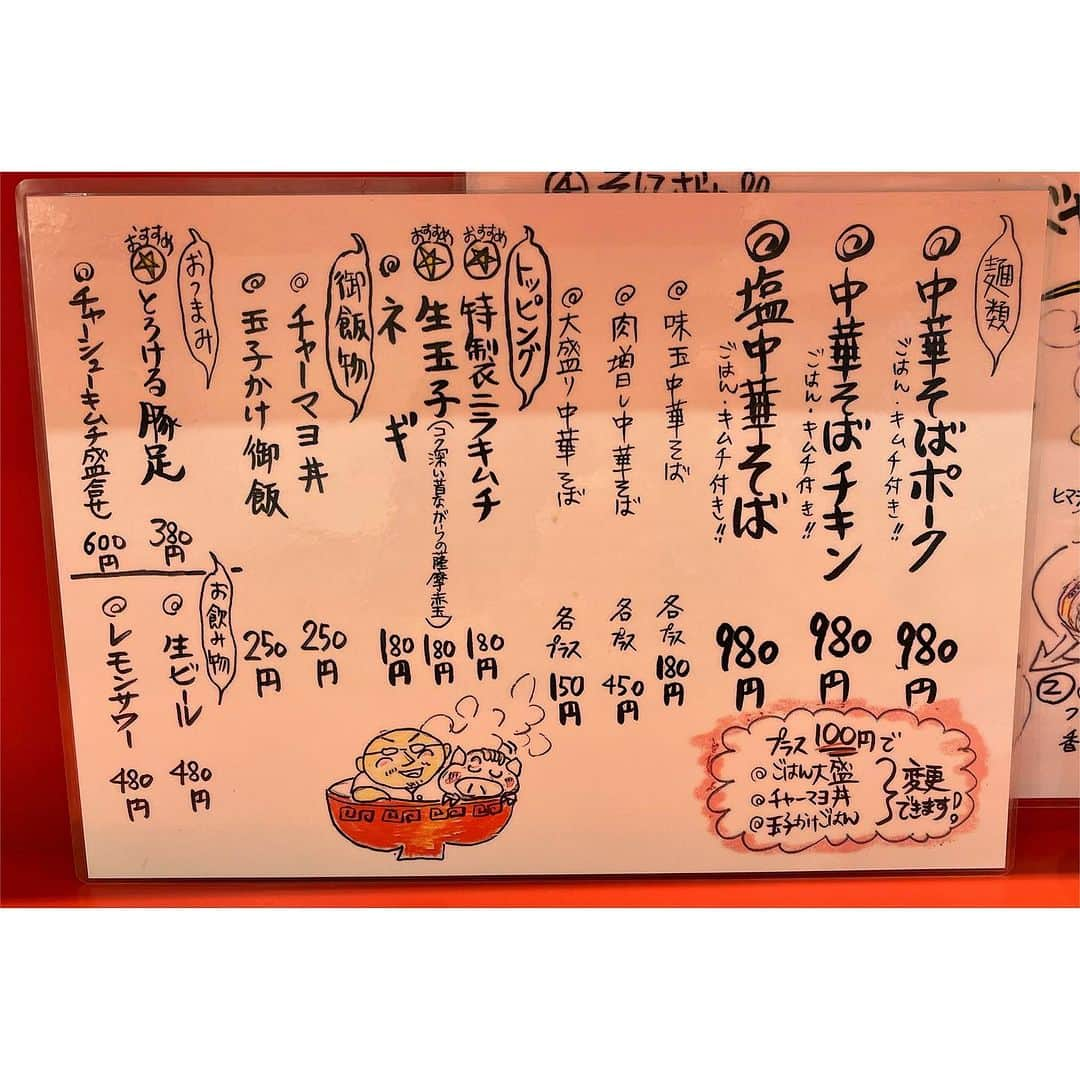 麺類
◎中華そばポーク
ごはん・キムチ付き!!
980円
◎中華そばチキン
ごはん・キムチ付き!!
980円
◎塩中華そば
ごはん・キムチ付き!!
980円
◎味玉中華そば
各プラス180円
◎肉増し中華そば
各プラス450円
◎大盛り中華そば
各プラス150円
プラス100円で
◎ごはん大盛
◎チャーマヨ丼
◎玉子かけごはん
変更できます!
トッピング
おすすめ
特製ニラキムチ
180円
おすすめ
生玉子(コク深い昔ながらの薩摩赤玉)
180円
◎ネギ
180円
御飯物
◎チャーマヨ丼
250円
◎玉子かけ御飯
250円
おつまみ
おすすめ
とろける豚足
380円
◎チャーシューキムチ盛合せ
600円
お飲み物
◎生ビール
480円
◎レモンサワー
480円
②
香